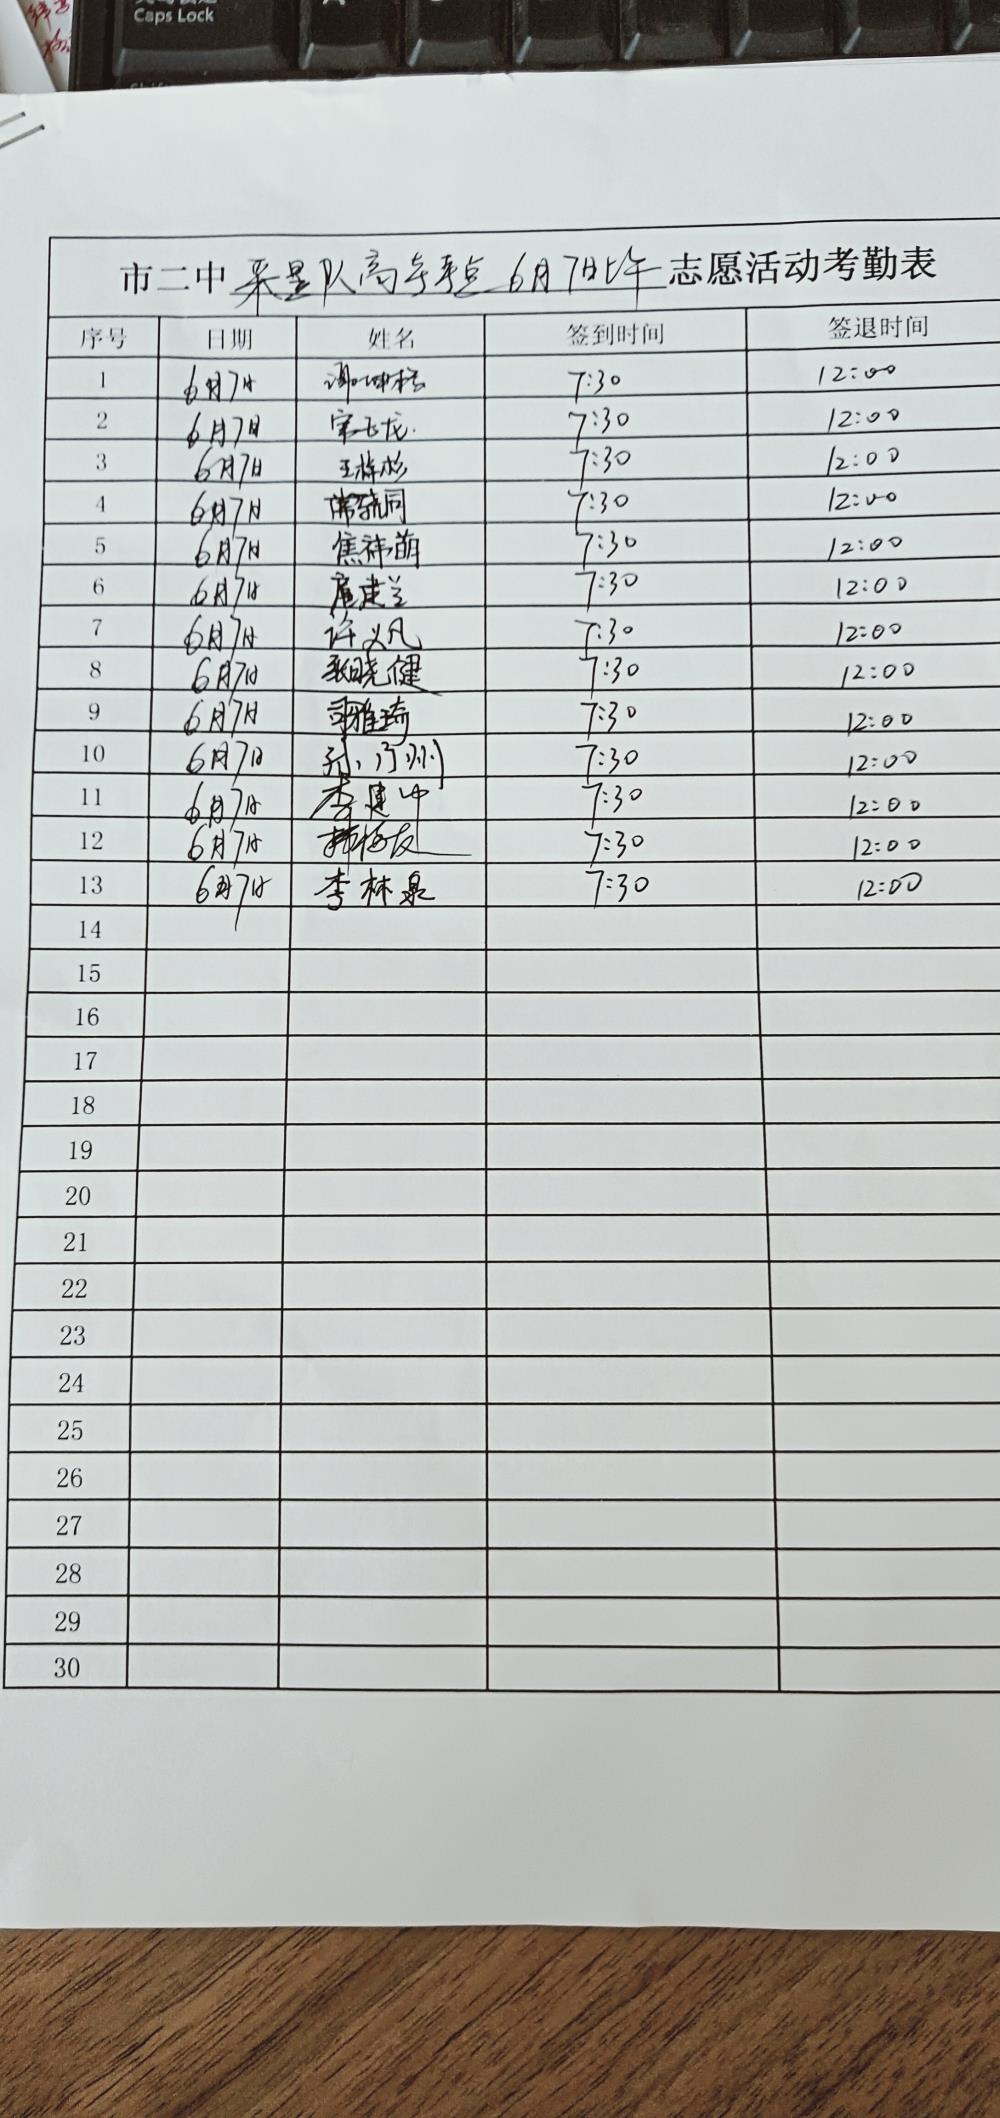 Caps Lock
市二中 采星队高考考点 6月7日上午 志愿活动考勤表
序号 日期 姓名 签到时间 签退时间
1 6月7日 7:30 12:00
2 6月7日 宋飞龙 7:30 12:00
3 6月7日 王梓杉 7:30 12:00
4 6月7日 7:30 12:00
5 6月7日 焦祎萌 7:30 12:00
6 6月7日 扈建兰 7:30 12:00
7 6月7日 许义凡 7:30 12:00
8 6月7日 张晓健 7:30 12:00
9 6月7日 司雅琦 7:30 12:00
10 6月7日 7:30 12:00
11 6月7日 李建中 7:30 12:00
12 6月7日 7:30 12:00
13 6月7日 李林泉 7:30 12:00
14
15
16
17
18
19
20
21
22
23
24
25
26
27
28
29
30